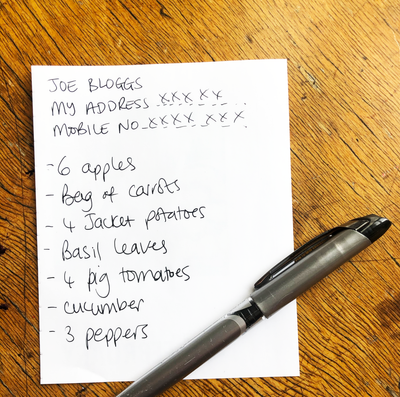 JOE BLOGGS
MY ADDRESS XXX XX
MOBILE NO XXXX XXX
- 6 apples
- Bag of carrots
- 4 Jacket potatoes
- Basil leaves
- 4 big tomatoes
- cucumber
- 3 peppers